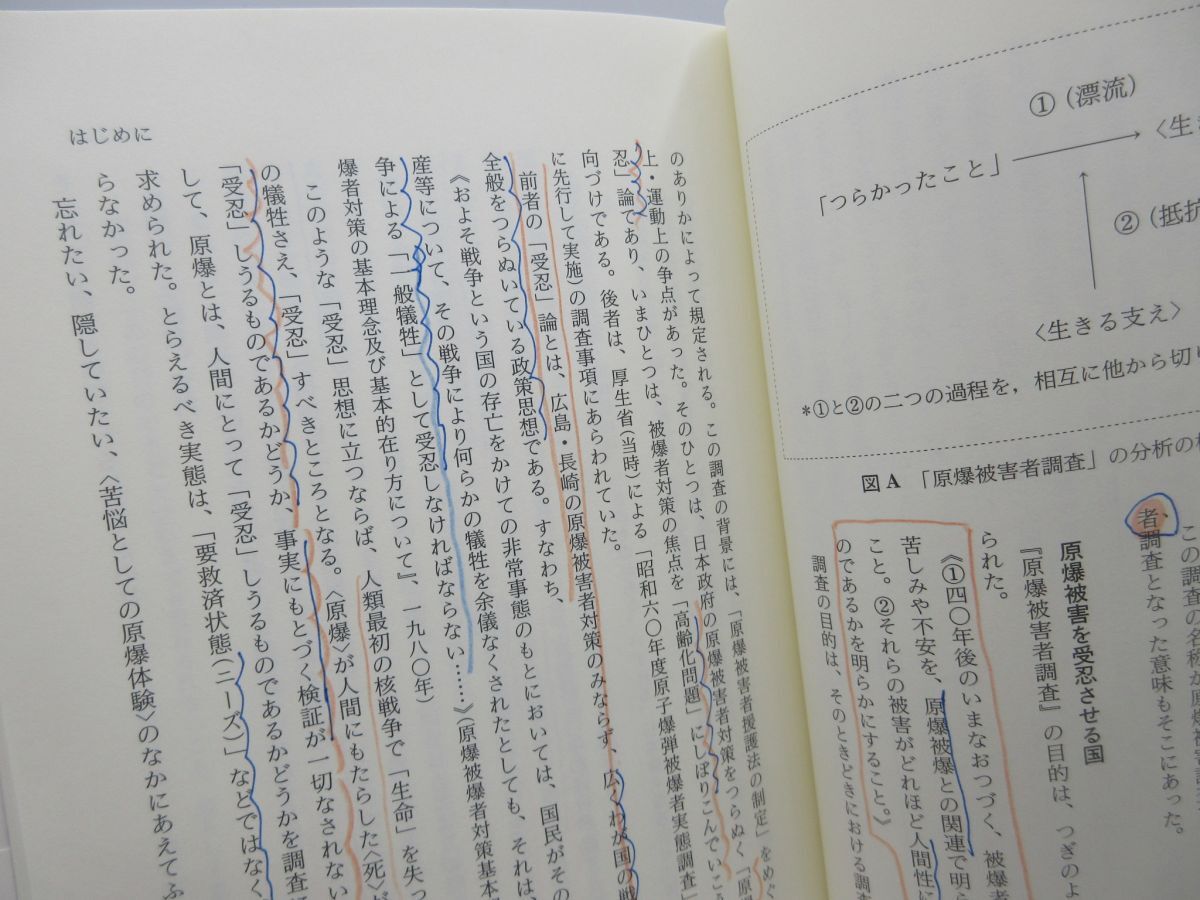 ① (漂流)
「つらかったこと」
〈生き
② (抵抗
〈生きる支え〉
*①と②の二つの過程を，相互に他から切り
図A 「原爆被害者調査」の分析の
この調査の名称が原爆被害
者調査となった意味もそこにあった。
原爆被害を受忍させる国
『原爆被害者調査』の目的は、つぎのよ
られた。
《①四〇年後のいまなおつづく、被爆者
苦しみや不安を、原爆被爆との関連で明ら
こと。②それらの被害がどれほど人間性に
のであるかを明らかにすること。》
調査の目的は、そのときどきにおける調査
はじめに
のありかによって規定される。この調査の背景には、「原爆被害者援護法の制定」をめぐ
上・運動上の争点があった。そのひとつは、日本政府の原爆被害者対策をつらぬく「原
忍」論であり、いまひとつは、被爆者対策の焦点を「高齢化問題」にしぼりこんでいこう
向づけである。後者は、厚生省(当時)による「昭和六〇年度原子爆弾被爆者実態調査」
に先行して実施)の調査事項にあらわれていた。
前者の「受忍」論とは、広島・長崎の原爆被害者対策のみならず、広くわが国の戦
全般をつらぬいている政策思想である。すなわち、
《およそ戦争という国の存亡をかけての非常事態のもとにおいては、国民がその
産等について、その戦争により何らかの犠牲を余儀なくされたとしても、それは、
争による「一般犠牲」として受忍しなければならない……》(原爆被爆者対策基本
爆者対策の基本理念及び基本的在り方について』、一九八〇年)
このような「受忍」思想に立つならば、人類最初の核戦争で「生命」を失っ
の犠牲さえ、「受忍」すべきところとなる。〈原爆〉が人間にもたらした〈死〉が
「受忍」しうるものであるかどうか、事実にもとづく検証が一切なされない
して、原爆とは、人間にとって「受忍」しうるものであるかどうかを調査
求められた。とらえるべき実態は、「要救済状態(ニーズ)」などではなく
らなかった。
忘れたい、隠していたい、〈苦悩としての原爆体験〉のなかにあえてふ